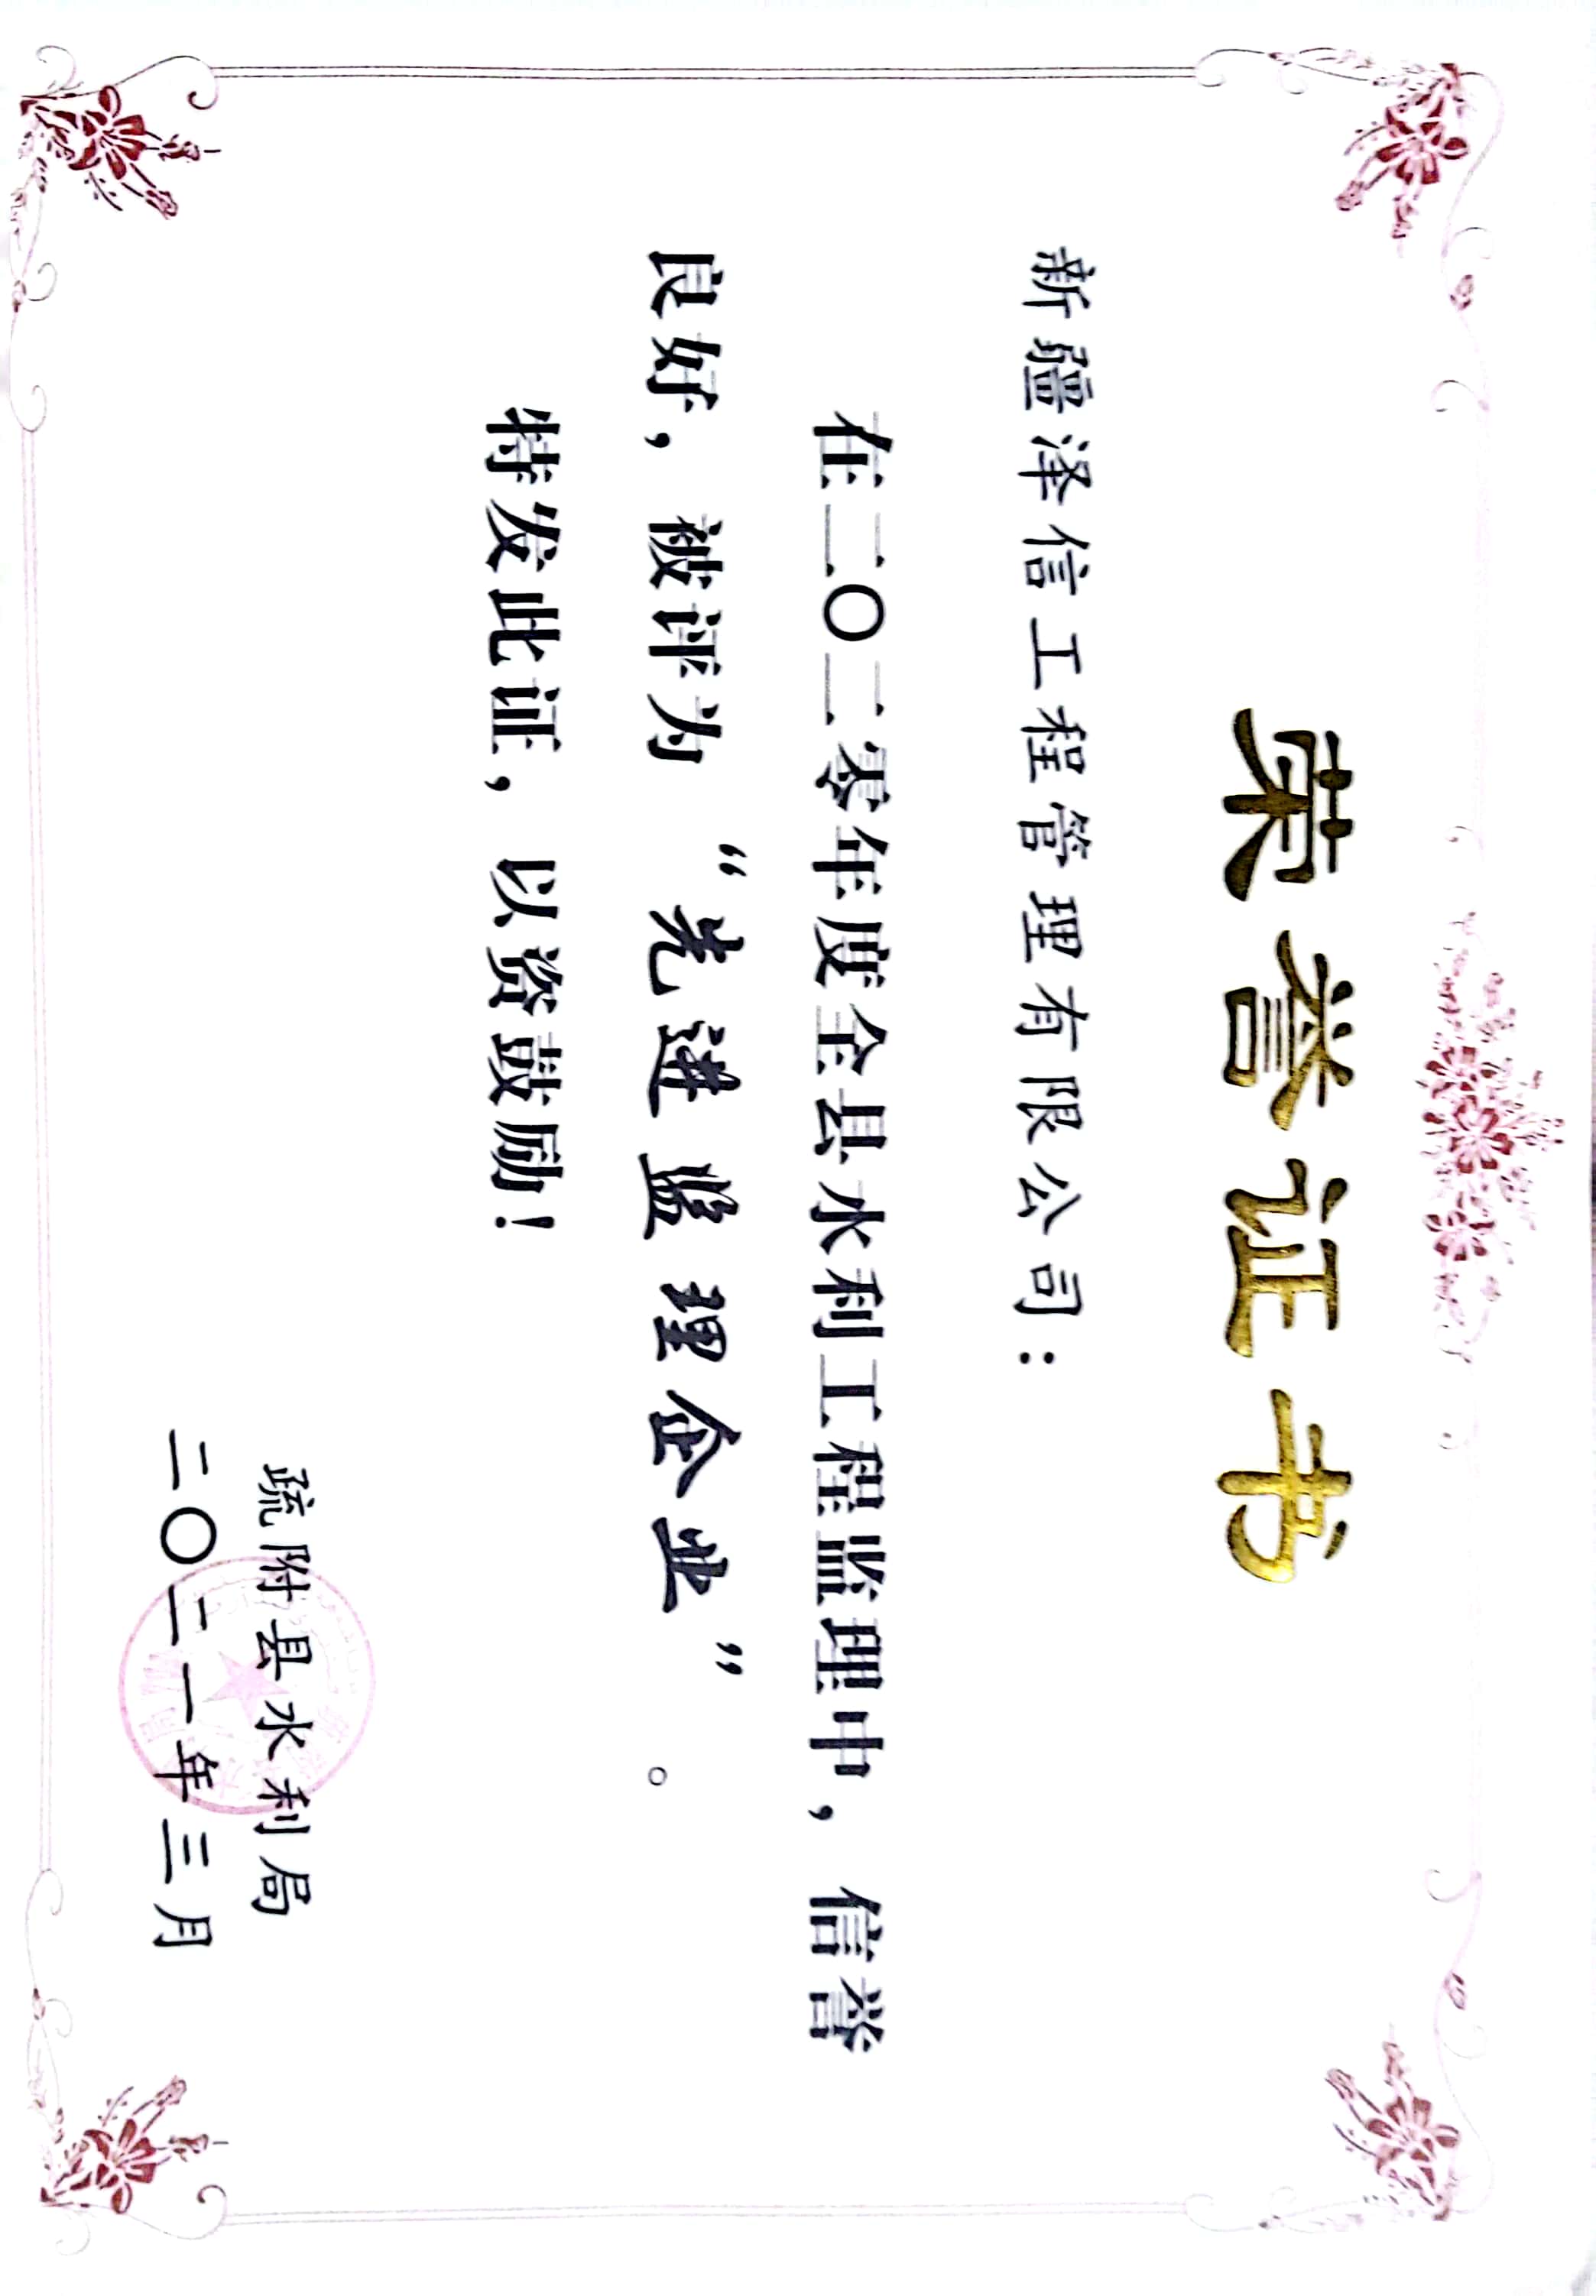 荣誉证书
新疆泽信工程管理有限公司：
在二〇二零年度全县水利工程监理中，信誉
良好，被评为“先进监理企业”。
特发此证，以资鼓励！
疏附县水利局
二〇二一年三月